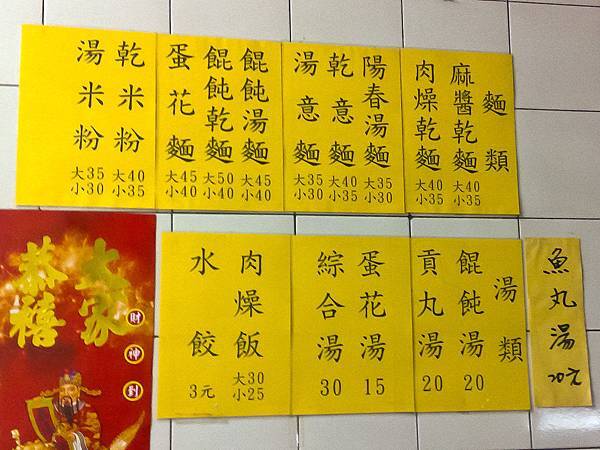 麵類
麻醬乾麵 大40 小35
肉燥乾麵 大40 小35
陽春湯麵 大35 小30
乾意麵 大40 小35
湯意麵 大35 小30
餛飩湯麵 大45 小40
餛飩乾麵 大50 小40
蛋花麵 大45 小40
乾米粉 大40 小35
湯米粉 大35 小30
魚丸湯 20元
湯類
餛飩湯 20
貢丸湯 20
蛋花湯 15
綜合湯 30
肉燥飯 大30 小25
水餃 3元
大家
恭禧
財神到